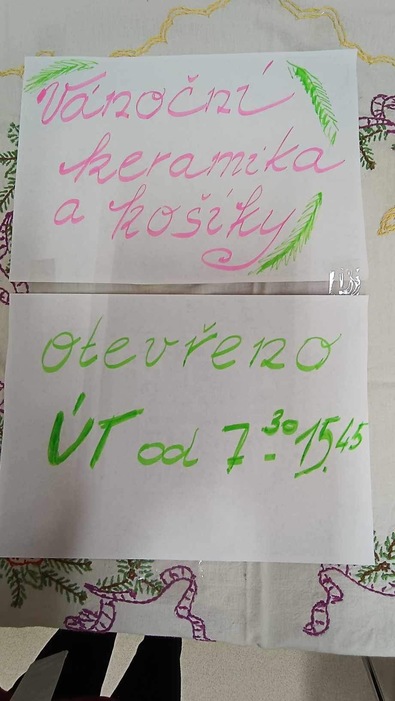 Vánoční
keramika
a košíky
otevřeno
ÚT od 7.30-15.45